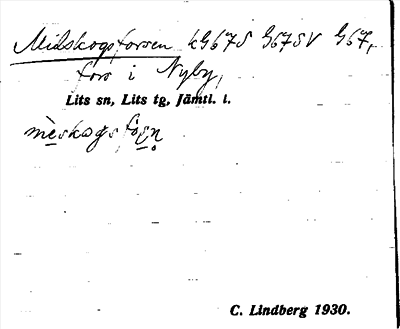 Midskogsforsen kG67S G67SV G67,
fors i Nyby,
Lits sn, Lits tg, Jämtl. l.
mèskogsfo̊ɛn
C. Lindberg 1930.